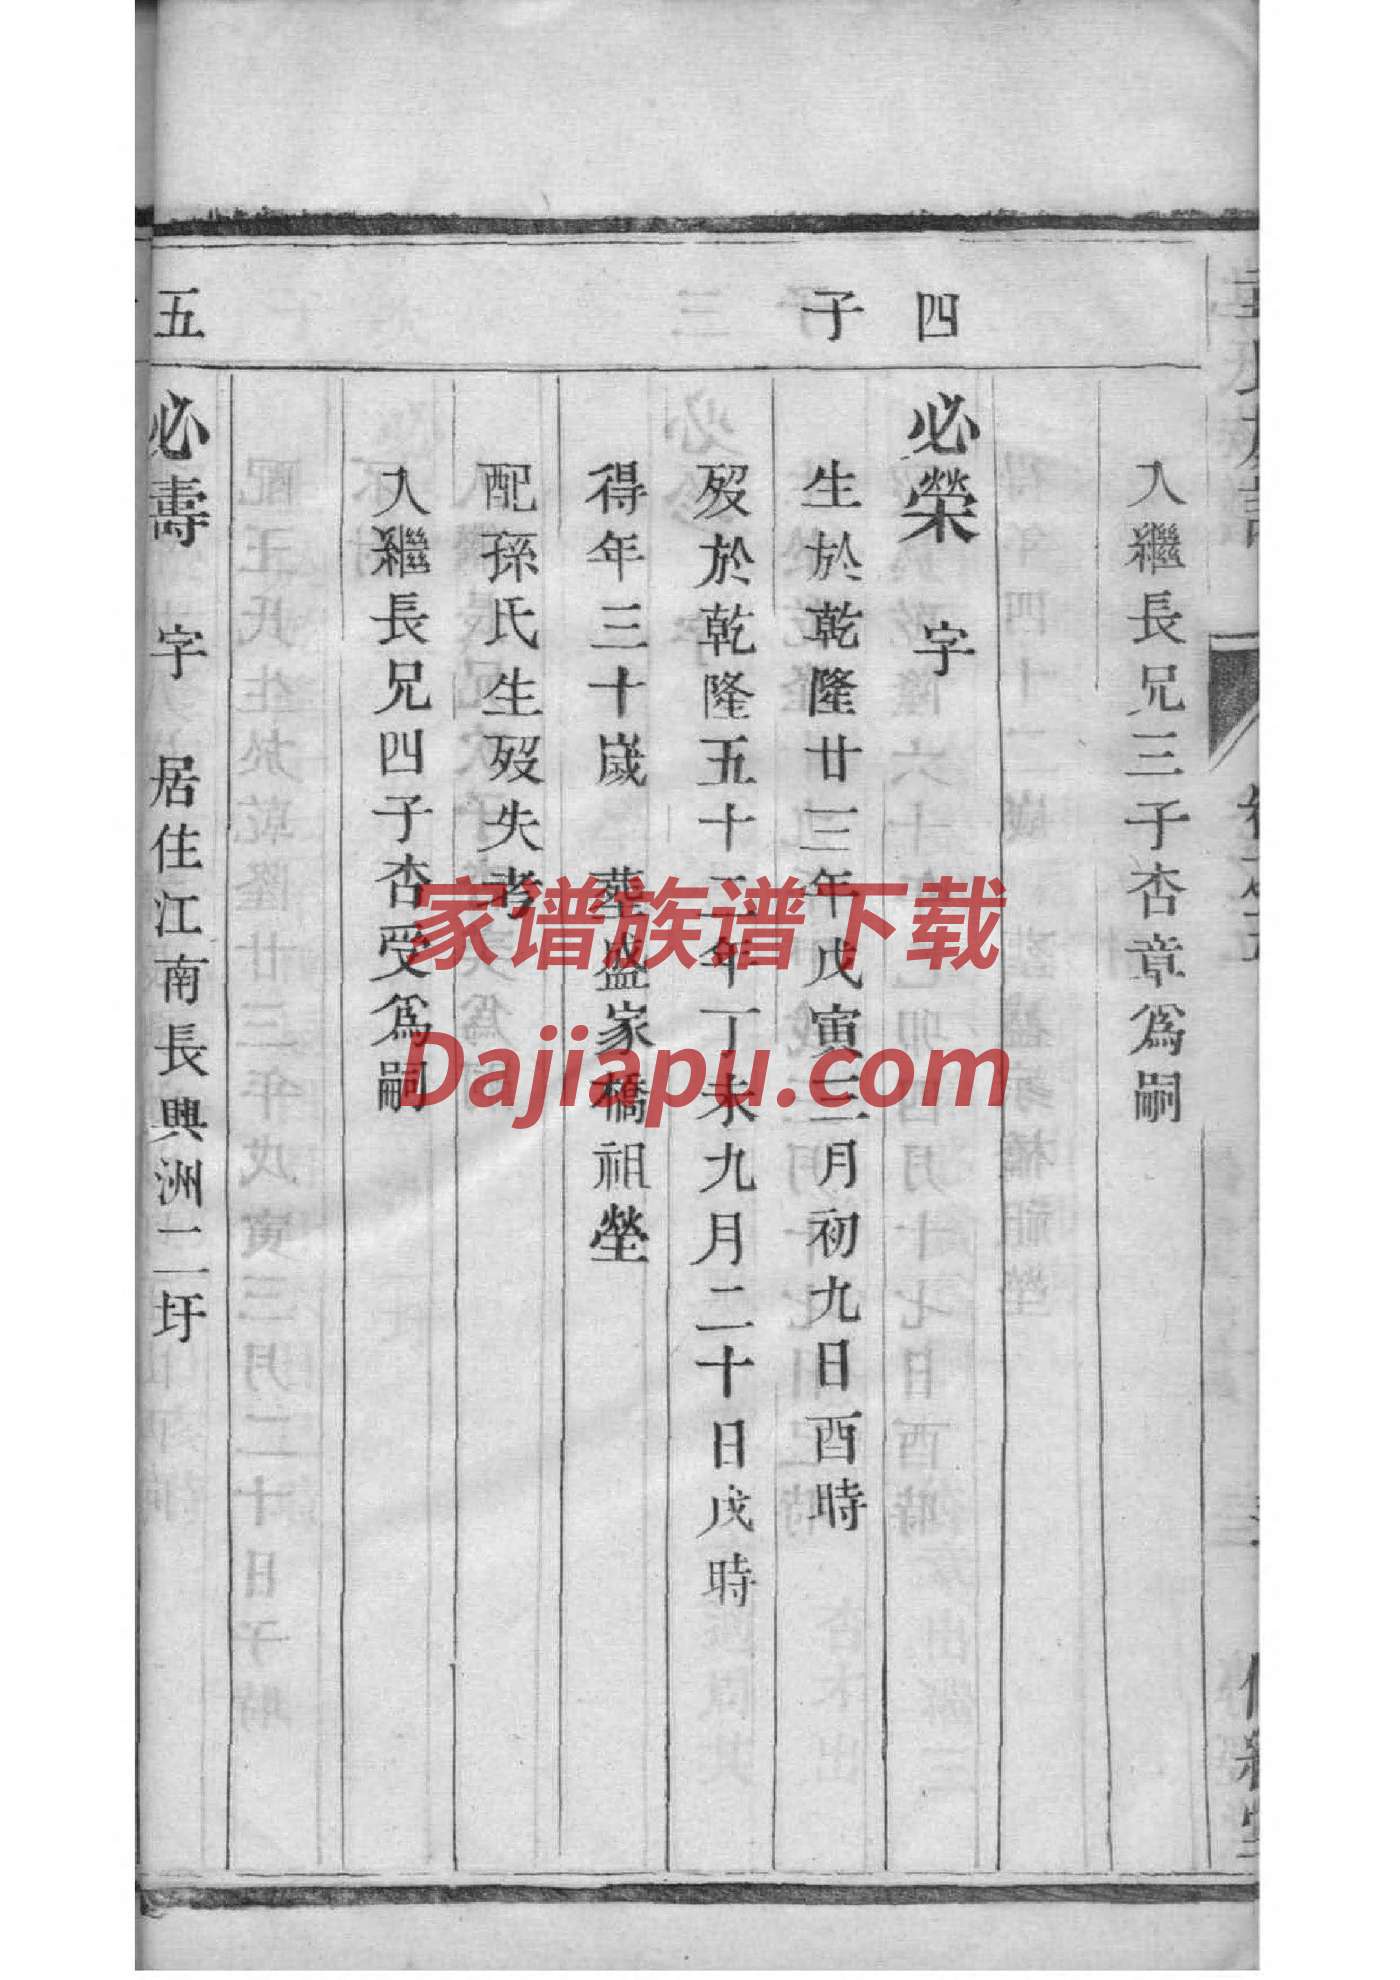 入繼長兄三子杏章爲嗣
四子
必榮 字
生於乾隆廿三年戊寅三月初九日酉時
歿於乾隆五十二年丁未九月二十日戌時
得年三十歲 葬盛家橋祖塋
配孫氏生歿失考
入繼長兄四子杏受爲嗣
五
必壽 字 居住江南長興洲二圩
家谱族谱下载
Dajiapu.com